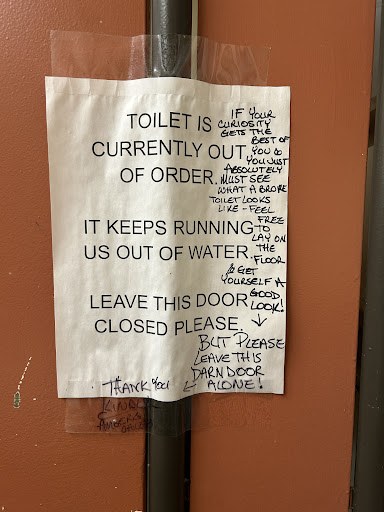 TOILET IS
CURRENTLY OUT
OF ORDER.
IT KEEPS RUNNING
US OUT OF WATER.
LEAVE THIS DOOR
CLOSED PLEASE.
IF YOUR
CURIOSITY
GETS THE
BEST OF
YOU &
YOU JUST
ABSOLUTELY
MUST SEE
WHAT A BROKE
TOILET LOOKS
LIKE - FEEL
FREE
TO
LAY ON
THE
FLOOR
& GET
YOURSELF A
GOOD
LOOK!
↓
BUT PLEASE
LEAVE THIS
DARN DOOR
ALONE!
THANK YOU